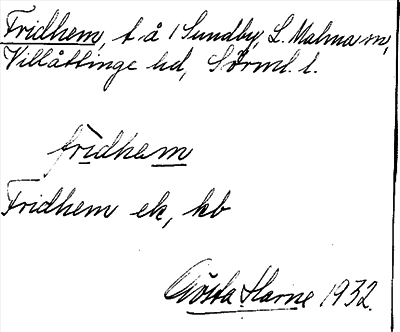 Fridhem, t. å 1 Sundby, L. Malma sn,
Villåttinge hd, Sörml. l.
fridhem
Fridhem ek, kb
Gösta Harne 1932.